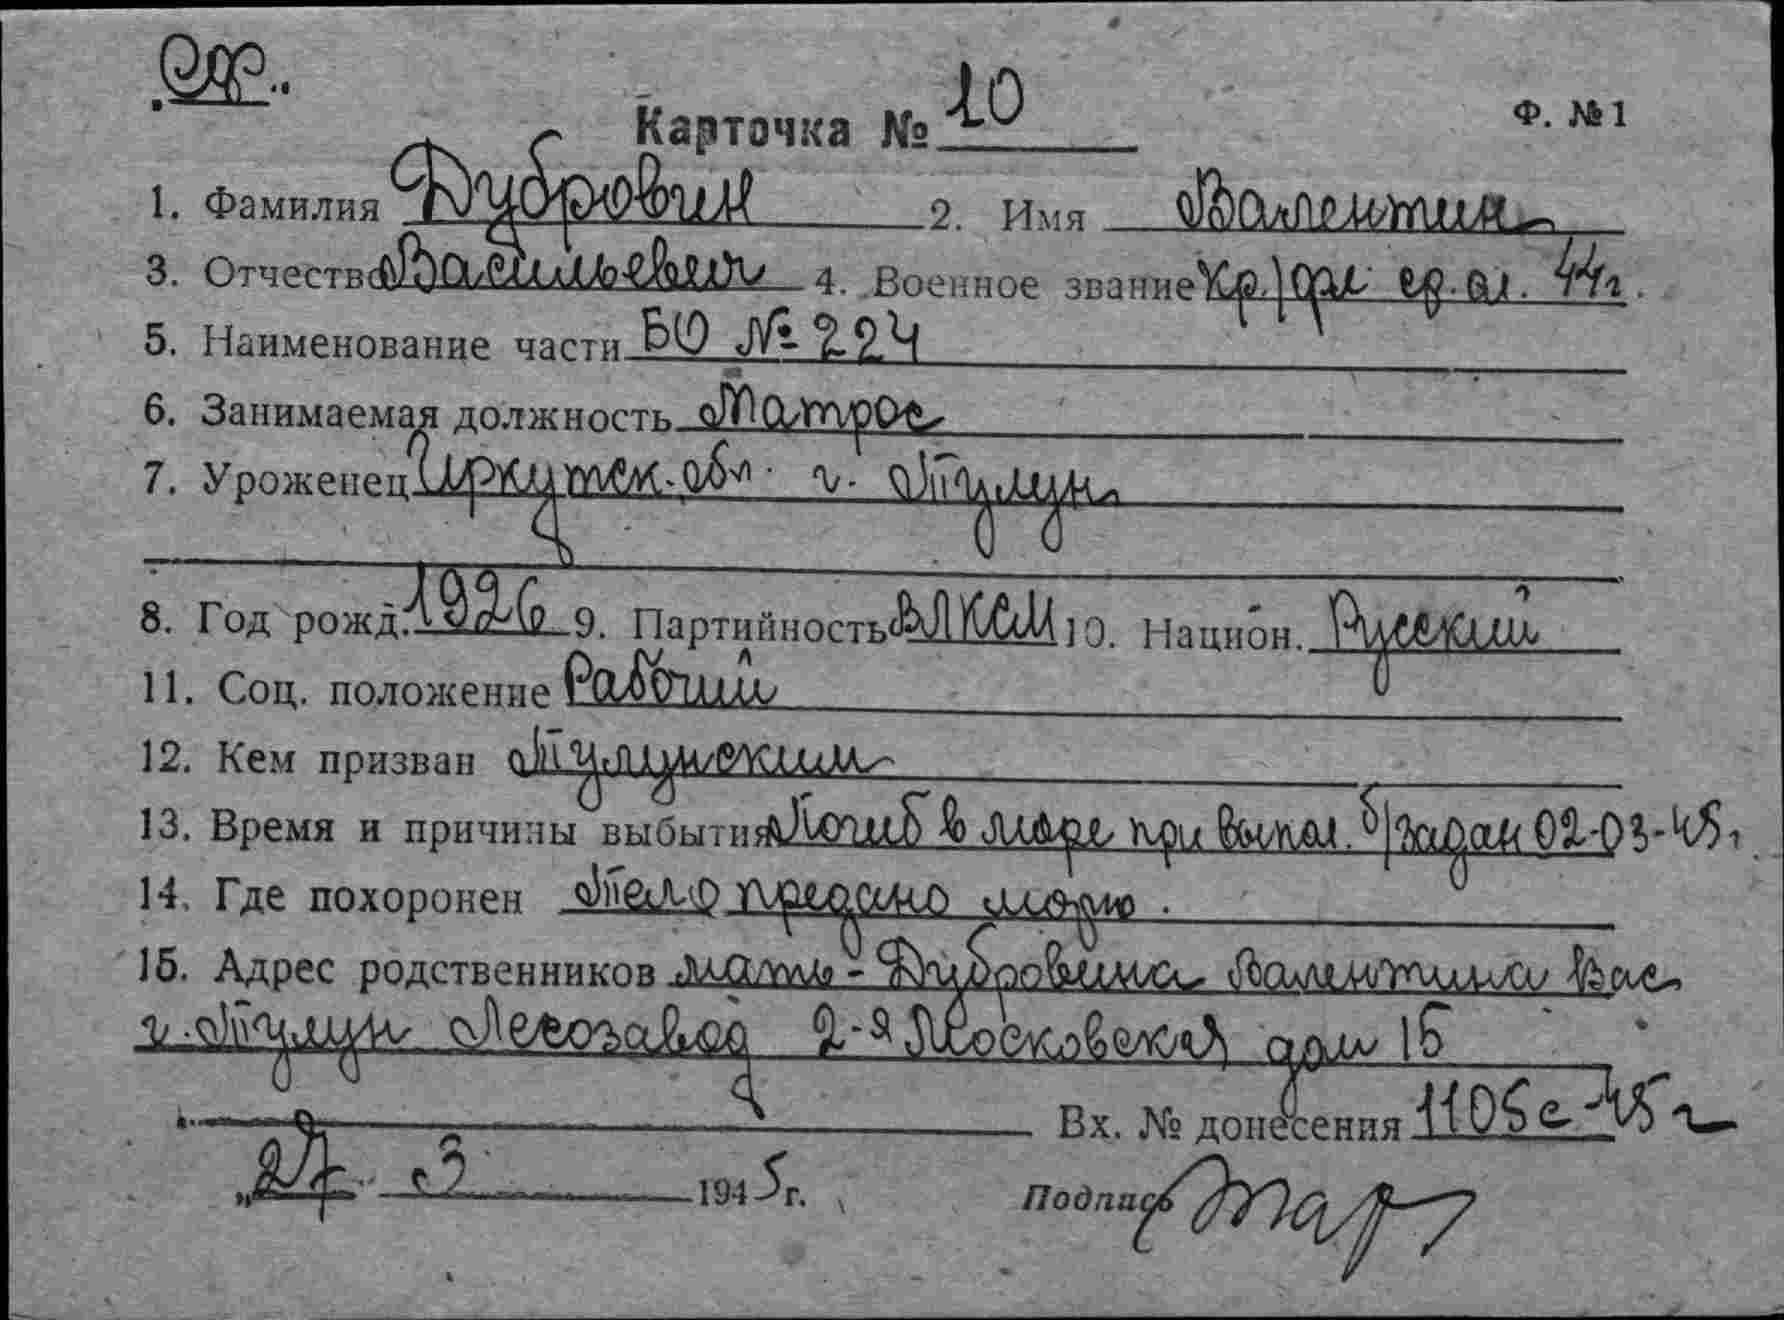 Карточка № 10 Ф. №1
1. Фамилия Дубровин 2. Имя Валентин
3. Отчество Васильевич 4. Военное звание Кр/фл ср.сл. 44г.
5. Наименование части БО № 224
6. Занимаемая должность Матрос
7. Уроженец Иркутск. обл. г. Тулун
8. Год рожд. 1926 9. Партийность ВЛКСМ 10. Национ. Русский
11. Соц. положение Рабочий
12. Кем призван Тулунским
13. Время и причины выбытия Погиб в море при выпол. б/задан 02-03-45г.
14. Где похоронен Тело предано морю.
15. Адрес родственников мать - Дубровина Валентина Вас
г. Тулун Лесозавод 2-я Московская дом 15
Вх. № донесения 1105с-45г
„27" 3 1945г. Подпись